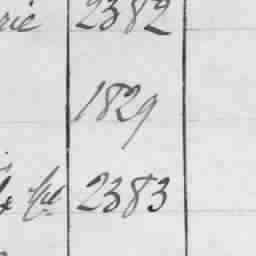 rie 2382
1829
2383